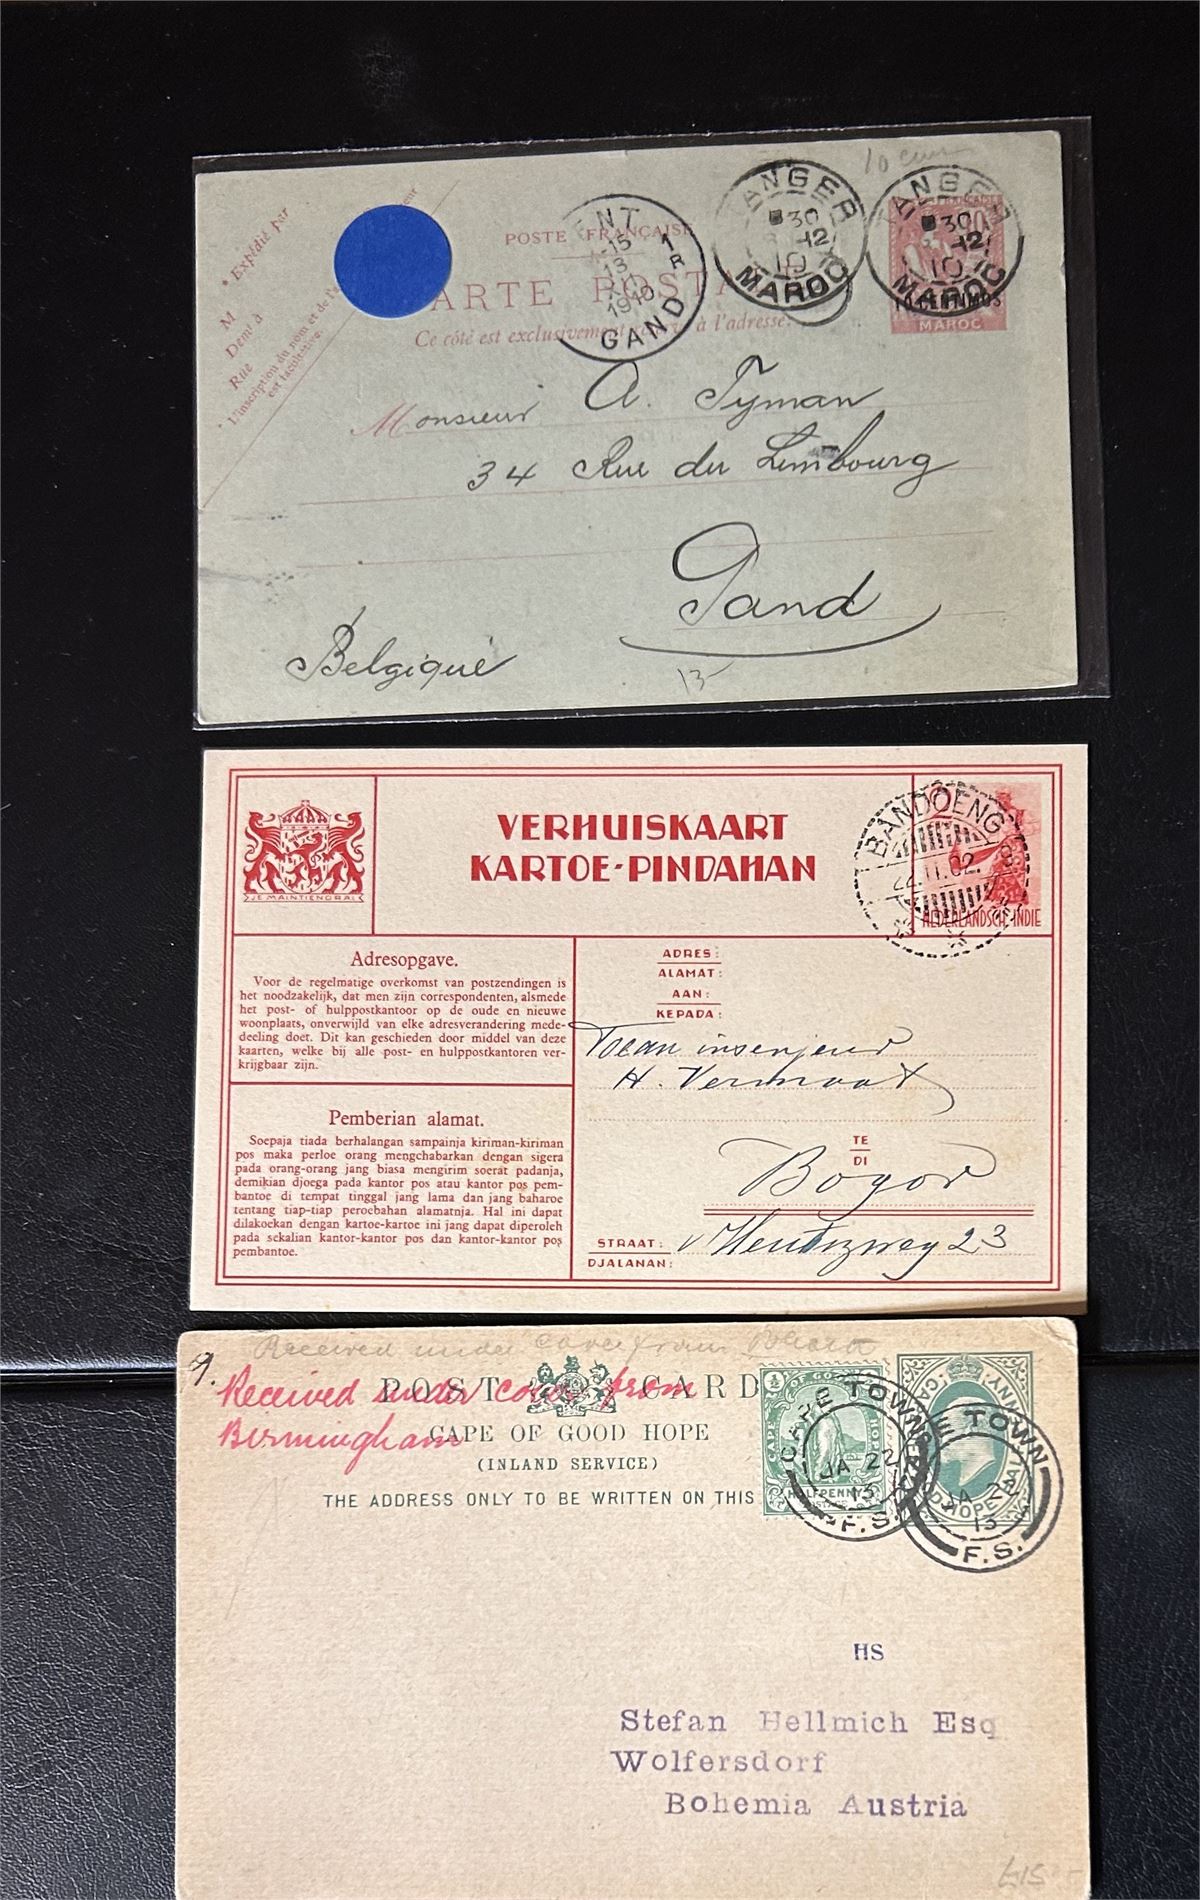 10 cm
* Expédié par
M
Demt à
Rue
* L'inscription du nom et de l'a eur
est facultative.
POSTE FRANÇAISE
CARTE POSTALE
Ce côté est exclusivement réservé à l'adresse.
GENT 1R
15
13
1910
GAND
TANGER
30
12
10
MAROC
TANGER
30
12
10
MAROC
10 CENTIMOS
MAROC
Monsieur A. Tyman
34 Rue du Limbourg
Gand
Belgique
15-
JE MAINTIENDRAI
VERHUISKAART
KARTOE-PINDAHAN
BANDOENG
22.11.02. 8
NEDERLANDSCH-INDIE
Adresopgave.
Voor de regelmatige overkomst van postzendingen is
het noodzakelijk, dat men zijn correspondenten, alsmede
het post- of hulppostkantoor op de oude en nieuwe
woonplaats, onverwijld van elke adresverandering mede-
deeling doet. Dit kan geschieden door middel van deze
kaarten, welke bij alle post- en hulppostkantoren ver-
krijgbaar zijn.
Pemberian alamat.
Soepaja tiada berhalangan sampainja kiriman-kiriman
pos maka perloe orang mengchabarkan dengan sigera
pada orang-orang jang biasa mengirim soerat padanja,
demikian djoega pada kantor pos atau kantor pos pem-
bantoe di tempat tinggal jang lama dan jang baharoe
tentang tiap-tiap peroebahan alamatnja. Hal ini dapat
dilakoekan dengan kartoe-kartoe ini jang dapat diperoleh
pada sekalian kantor-kantor pos dan kantor-kantor pos
pembantoe.
ADRES:
ALAMAT:
AAN:
KEPADA:
Toean insenjeur
H. Vermaat
TE
DI
Bogor
STRAAT:
DJALANAN:
v Heutszweg 23
9.
Received under cover from
Received under cover from
Birmingham
POST CARD
CAPE OF GOOD HOPE
(INLAND SERVICE)
THE ADDRESS ONLY TO BE WRITTEN ON THIS
½
CAPE OF GOOD HOPE
HALFPENNY
POSTAGE
CAPE TOWN
JA 22
13
F.S.
CAPE TOWN
JA 22
13
F.S.
HS
Stefan Hellmich Esq
Wolfersdorf
Bohemia Austria
£15-